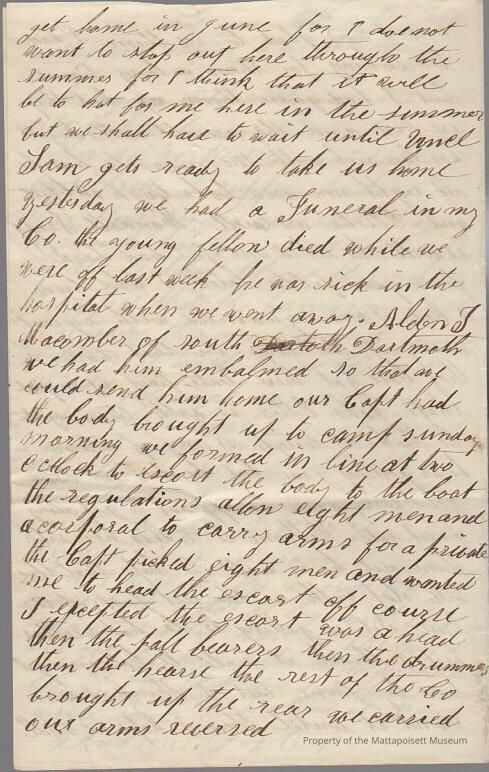 get home in June for I doe not
want to stop out here through the
summer for I think that it will
be to hat for me here in the summer
but we shall have to wait until Uncl
Sam gets ready to take us home
yesterday we had a Funeral in my
Co. the young fellon died while we
were of last week he was sick in the
hospital when we went away. Alden T
Macomber of south Dartmoth
we had him embalmed so that we
could send him home our Capt had
the body brought up to camp sunday
morning we formed in line at two
oclock to escort the body to the boat
the regulations allon eight men and
a corporal to carry arms for a private
the Capt picked eight men and wanted
me to head the escort off course
I excepted the escort was ahead
then the pall bearers then the drummer
then the hearse the rest of the Co
brought up the rear we carried
our arms reversed
Property of the Mattapoisett Museum